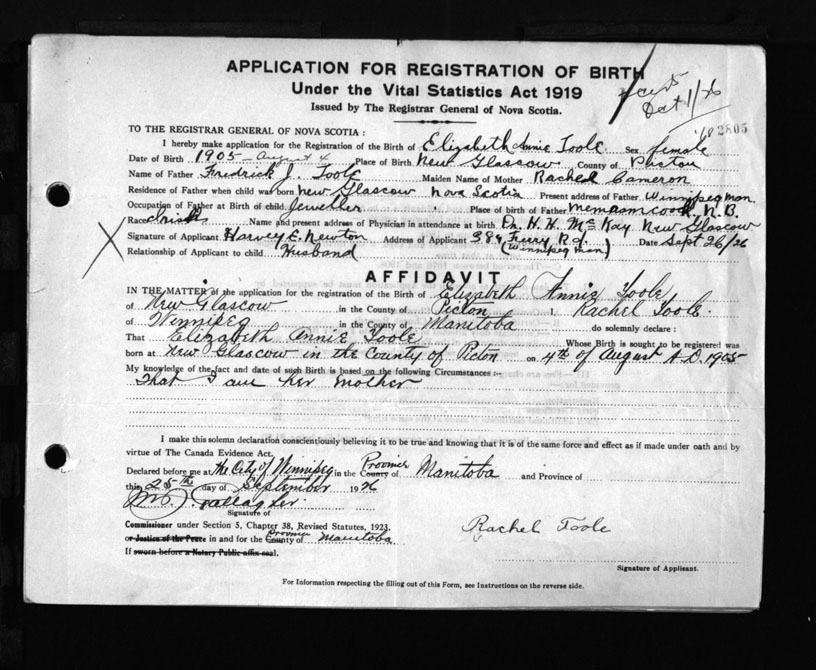 APPLICATION FOR REGISTRATION OF BIRTH
Under the Vital Statistics Act 1919
Oct 1/26
Issued by The Registrar General of Nova Scotia.
2805
TO THE REGISTRAR GENERAL OF NOVA SCOTIA :
I hereby make application for the Registration of the Birth of Elizabeth Annie Toole Sex female
Date of Birth 1905 - August 4 Place of Birth New Glascow County of Pictou
Name of Father Fredrick J. Toole Maiden Name of Mother Rachel Cameron
Residence of Father when child was born New Glascow Nova Scotia Present address of Father Winnipeg Man.
Occupation of Father at Birth of child Jeweller Place of birth of Father Memramcook, N.B.
Race Irish Name and present address of Physician in attendance at birth Dr. H. H. McKay New Glascow
Signature of Applicant Harvey E. Newton Address of Applicant 384 Ferry Rd. Date Sept 26/26
(Winnipeg Man)
Relationship of Applicant to child Husband
AFFIDAVIT
IN THE MATTER of the application for the registration of the Birth of Elizabeth Annie Toole
of New Glascow in the County of Picton I, Rachel Toole
of Winnipeg in the County of Manitoba do solemnly declare :
That Elizabeth Annie Toole Whose Birth is sought to be registered was
born at New Glascow in the County of Picton on 4th of August A.D. 1905
My knowledge of the fact and date of such Birth is based on the following Circumstances :-
That I am her mother
I make this solemn declaration conscientiously believing it to be true and knowing that it is of the same force and effect as if made under oath and by
virtue of The Canada Evidence Act.
Province
Declared before me at the City of Winnipeg in the County of Manitoba and Province of
this 25th day of September 1926
Gallagher
Signature of
Commissioner under Section 5, Chapter 38, Revised Statutes, 1923.
Rachel Toole
Province
or Justice of the Peace in and for the County of Manitoba
If sworn before a Notary Public affix seal.
Signature of Applicant.
For Information respecting the filling out of this Form, see Instructions on the reverse side.